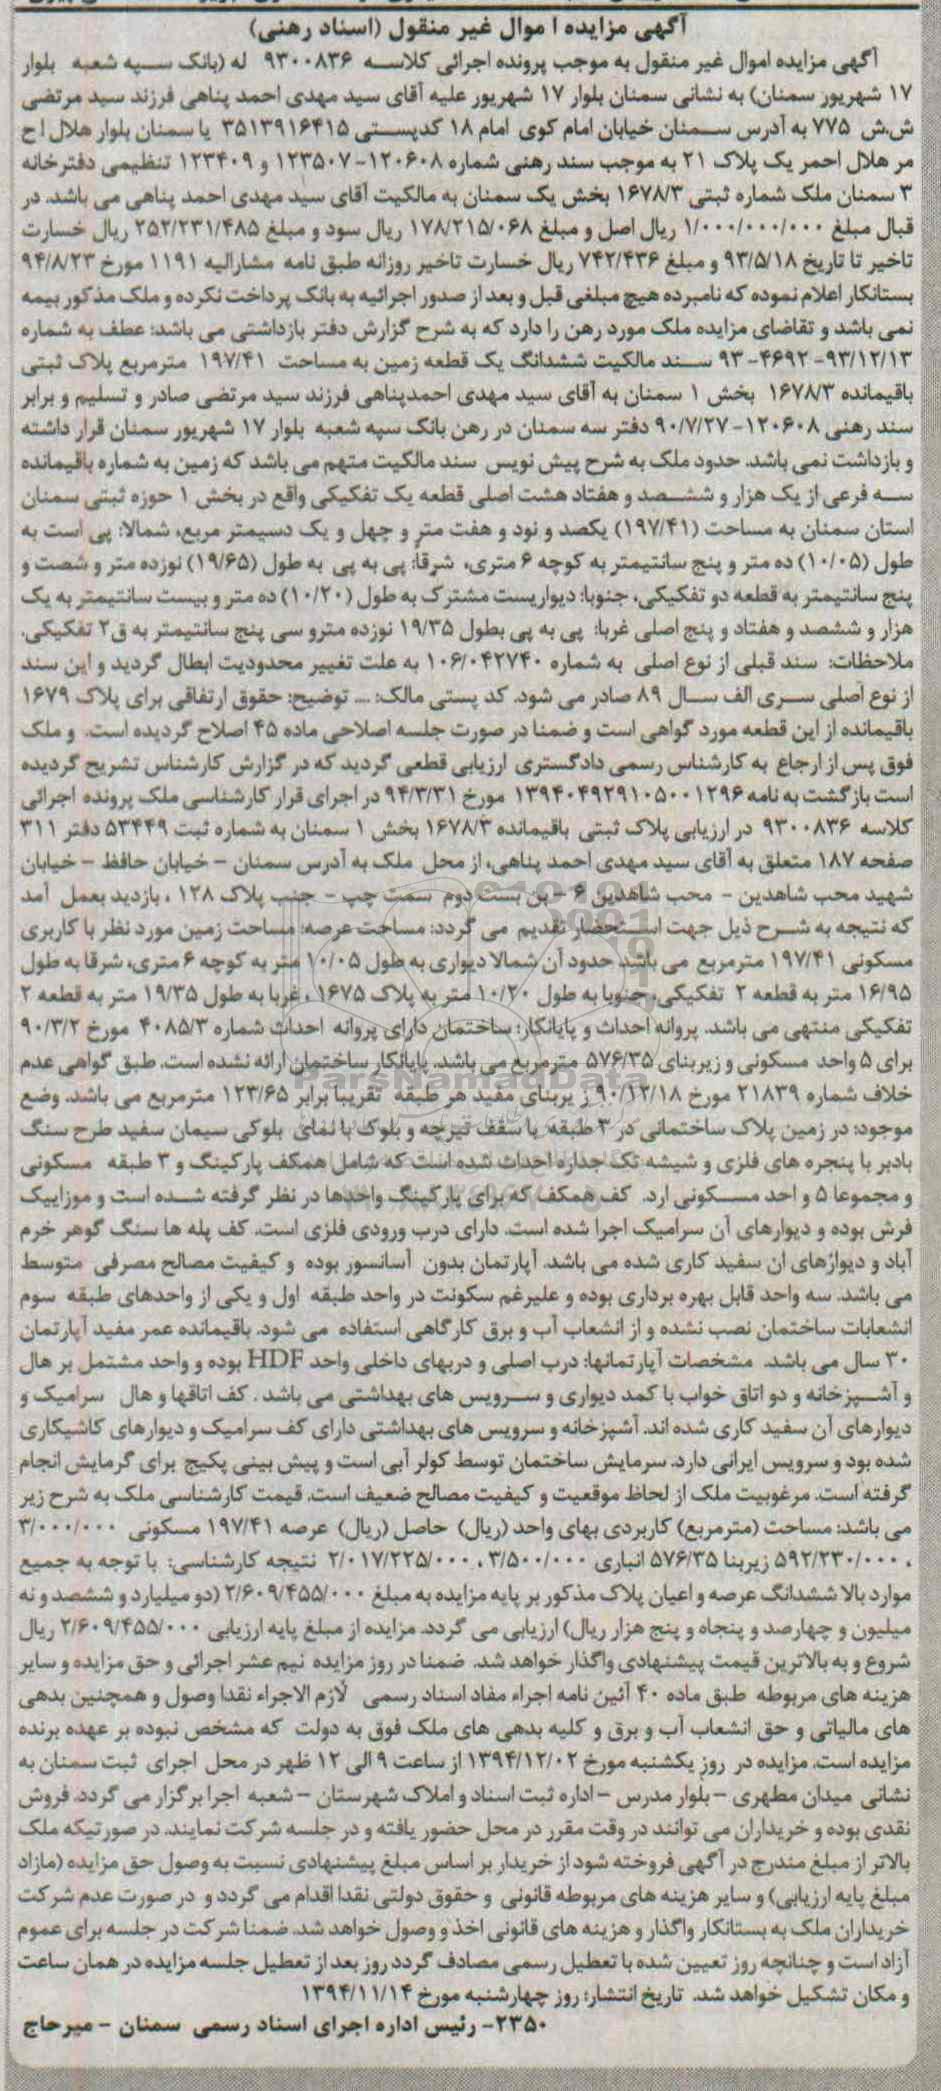 آگهی مزایده اموال غیر منقول (اسناد رهنی)
آگهی مزایده اموال غیر منقول به موجب پرونده اجرائی کلاسه ۹۳۰۰۸۳۶ له (بانک سپه شعبه بلوار
۱۷ شهریور سمنان) به نشانی سمنان بلوار ۱۷ شهریور علیه آقای سید مهدی احمد پناهی فرزند سید مرتضی
ش.ش ۷۷۵ به آدرس سمنان خیابان امام کوی امام ۱۸ کدپستی ۳۵۱۳۹۱۶۴۱۵ یا سمنان بلوار هلال اح
مر هلال احمر یک پلاک ۲۱ به موجب سند رهنی شماره ۱۲۰۶۰۸- ۱۲۳۵۰۷ و ۱۲۳۴۰۹ تنظیمی دفترخانه
۳ سمنان ملک شماره ثبتی ۱۶۷۸/۳ بخش یک سمنان به مالکیت آقای سید مهدی احمد پناهی می باشد. در
قبال مبلغ ۱/۰۰۰/۰۰۰/۰۰۰ ریال اصل و مبلغ ۱۷۸/۲۱۵/۰۶۸ ریال سود و مبلغ ۲۵۲/۲۳۱/۴۸۵ ریال خسارت
تاخیر تا تاریخ ۹۳/۵/۱۸ و مبلغ ۷۴۲/۴۳۶ ریال خسارت تاخیر روزانه طبق نامه مشارالیه ۱۱۹۱ مورخ ۹۴/۸/۲۳
بستانکار اعلام نموده که نامبرده هیچ مبلغی قبل و بعد از صدور اجرائیه به بانک پرداخت نکرده و ملک مذکور بیمه
نمی باشد و تقاضای مزایده ملک مورد رهن را دارد که به شرح گزارش دفتر بازداشتی می باشد: عطف به شماره
۹۳/۱۲/۱۳- ۴۶۹۲- ۹۳ سند مالکیت ششدانگ یک قطعه زمین به مساحت ۱۹۷/۴۱ مترمربع پلاک ثبتی
باقیمانده ۱۶۷۸/۳ بخش ۱ سمنان به آقای سید مهدی احمدپناهی فرزند سید مرتضی صادر و تسلیم و برابر
سند رهنی ۱۲۰۶۰۸- ۹۰/۷/۲۷ دفتر سه سمنان در رهن بانک سپه شعبه بلوار ۱۷ شهریور سمنان قرار داشته
و بازداشت نمی باشد. حدود ملک به شرح پیش نویس سند مالکیت متهم می باشد که زمین به شماره باقیمانده
سه فرعی از یک هزار و ششصد و هفتاد هشت اصلی قطعه یک تفکیکی واقع در بخش ۱ حوزه ثبتی سمنان
استان سمنان به مساحت (۱۹۷/۴۱) یکصد و نود و هفت متر و چهل و یک دسیمتر مربع، شمالا: پی است به
طول (۱۰/۰۵) ده متر و پنج سانتیمتر به کوچه ۶ متری، شرقا: پی به پی به طول (۱۹/۶۵) نوزده متر و شصت و
پنج سانتیمتر به قطعه دو تفکیکی، جنوبا: دیواریست مشترک به طول (۱۰/۲۰) ده متر و بیست سانتیمتر به یک
هزار و ششصد و هفتاد و پنج اصلی غربا: پی به پی بطول ۱۹/۳۵ نوزده مترو سی پنج سانتیمتر به ق۲ تفکیکی.
ملاحظات: سند قبلی از نوع اصلی به شماره ۱۰۶/۰۴۲۷۴۰ به علت تغییر محدودیت ابطال گردید و این سند
از نوع اصلی سری الف سال ۸۹ صادر می شود. کد پستی مالک: ... توضیح: حقوق ارتفاقی برای پلاک ۱۶۷۹
باقیمانده از این قطعه مورد گواهی است و ضمنا در صورت جلسه اصلاحی ماده ۴۵ اصلاح گردیده است. و ملک
فوق پس از ارجاع به کارشناس رسمی دادگستری ارزیابی قطعی گردید که در گزارش کارشناس تشریح گردیده
است بازگشت به نامه ۱۳۹۴۰۴۹۲۹۱۰۵۰۰۱۲۹۶ مورخ ۹۴/۳/۳۱ در اجرای قرار کارشناسی ملک پرونده اجرائی
کلاسه ۹۳۰۰۸۳۶ در ارزیابی پلاک ثبتی باقیمانده ۱۶۷۸/۳ بخش ۱ سمنان به شماره ثبت ۵۳۴۴۹ دفتر ۳۱۱
صفحه ۱۸۷ متعلق به آقای سید مهدی احمد پناهی، از محل ملک به آدرس سمنان - خیابان حافظ - خیابان
شهید محب شاهدین - محب شاهدین ۶ - بن بست دوم سمت چپ - جنب پلاک ۱۲۸ ، بازدید بعمل آمد
که نتیجه به شرح ذیل جهت استحضار تقدیم می گردد: مساحت عرصه: مساحت زمین مورد نظر با کاربری
مسکونی ۱۹۷/۴۱ مترمربع می باشد حدود آن شمالا دیواری به طول ۱۰/۰۵ متر به کوچه ۶ متری، شرقا به طول
۱۶/۹۵ متر به قطعه ۲ تفکیکی، جنوبا به طول ۱۰/۲۰ متر به پلاک ۱۶۷۵ ، غربا به طول ۱۹/۳۵ متر به قطعه ۲
تفکیکی منتهی می باشد. پروانه احداث و پایانکار: ساختمان دارای پروانه احداث شماره ۴۰۸۵/۳ مورخ ۹۰/۳/۲
برای ۵ واحد مسکونی و زیربنای ۵۷۶/۳۵ مترمربع می باشد. پایانکار ساختمان ارائه نشده است. طبق گواهی عدم
خلاف شماره ۲۱۸۳۹ مورخ ۹۰/۱۲/۱۸ زیربنای مفید هر طبقه تقریبا برابر ۱۲۳/۶۵ مترمربع می باشد. وضع
موجود: در زمین پلاک ساختمانی در ۳ طبقه با سقف تیرچه و بلوک با نمای بلوکی سیمان سفید طرح سنگ
بادبر با پنجره های فلزی و شیشه تک جداره احداث شده است که شامل همکف پارکینگ و ۳ طبقه مسکونی
و مجموعا ۵ واحد مسکونی ارد. کف همکف که برای پارکینگ واحدها در نظر گرفته شده است و موزاییک
فرش بوده و دیوارهای آن سرامیک اجرا شده است. دارای درب ورودی فلزی است. کف پله ها سنگ گوهر خرم
آباد و دیوازهای ان سفید کاری شده می باشد. آپارتمان بدون آسانسور بوده و کیفیت مصالح مصرفی متوسط
می باشد. سه واحد قابل بهره برداری بوده و علیرغم سکونت در واحد طبقه اول و یکی از واحدهای طبقه سوم
انشعابات ساختمان نصب نشده و از انشعاب آب و برق کارگاهی استفاده می شود. باقیمانده عمر مفید آپارتمان
۳۰ سال می باشد. مشخصات آپارتمانها: درب اصلی و دربهای داخلی واحد HDF بوده و واحد مشتمل بر هال
و آشپزخانه و دو اتاق خواب با کمد دیواری و سرویس های بهداشتی می باشد . کف اتاقها و هال سرامیک و
دیوارهای آن سفید کاری شده اند. آشپزخانه و سرویس های بهداشتی دارای کف سرامیک و دیوارهای کاشیکاری
شده بود و سرویس ایرانی دارد. سرمایش ساختمان توسط کولر آبی است و پیش بینی پکیج برای گرمایش انجام
گرفته است. مرغوبیت ملک از لحاظ موقعیت و کیفیت مصالح ضعیف است. قیمت کارشناسی ملک به شرح زیر
می باشد: مساحت (مترمربع) کاربردی بهای واحد (ریال) حاصل (ریال) عرصه ۱۹۷/۴۱ مسکونی ۳/۰۰۰/۰۰۰
، ۵۹۲/۲۳۰/۰۰۰ زیربنا ۵۷۶/۳۵ انباری ۳/۵۰۰/۰۰۰ ، ۲/۰۱۷/۲۲۵/۰۰۰ نتیجه کارشناسی: با توجه به جمیع
موارد بالا ششدانگ عرصه و اعیان پلاک مذکور بر پایه مزایده به مبلغ ۲/۶۰۹/۴۵۵/۰۰۰ (دو میلیارد و ششصد و نه
میلیون و چهارصد و پنجاه و پنج هزار ریال) ارزیابی می گردد. مزایده از مبلغ پایه ارزیابی ۲/۶۰۹/۴۵۵/۰۰۰ ریال
شروع و به بالاترین قیمت پیشنهادی واگذار خواهد شد. ضمنا در روز مزایده نیم عشر اجرائی و حق مزایده و سایر
هزینه های مربوطه طبق ماده ۴۰ آئین نامه اجراء مفاد اسناد رسمی لازم الاجراء نقدا وصول و همچنین بدهی
های مالیاتی و حق انشعاب آب و برق و کلیه بدهی های ملک فوق به دولت که مشخص نبوده بر عهده برنده
مزایده است. مزایده در روز یکشنبه مورخ ۱۳۹۴/۱۲/۰۲ از ساعت ۹ الی ۱۲ ظهر در محل اجرای ثبت سمنان به
نشانی میدان مطهری - بلوار مدرس - اداره ثبت اسناد و املاک شهرستان - شعبه اجرا برگزار می گردد. فروش
نقدی بوده و خریداران می توانند در وقت مقرر در محل حضور یافته و در جلسه شرکت نمایند. در صورتیکه ملک
بالاتر از مبلغ مندرج در آگهی فروخته شود از خریدار بر اساس مبلغ پیشنهادی نسبت به وصول حق مزایده (مازاد
مبلغ پایه ارزیابی) و سایر هزینه های مربوطه قانونی و حقوق دولتی نقدا اقدام می گردد و در صورت عدم شرکت
خریداران ملک به بستانکار واگذار و هزینه های قانونی اخذ و وصول خواهد شد. ضمنا شرکت در جلسه برای عموم
آزاد است و چنانچه روز تعیین شده با تعطیل رسمی مصادف گردد روز بعد از تعطیل جلسه مزایده در همان ساعت
و مکان تشکیل خواهد شد. تاریخ انتشار: روز چهارشنبه مورخ ۱۳۹۴/۱۱/۱۴
۲۳۵۰- رئیس اداره اجرای اسناد رسمی سمنان - میرحاج
ParsNamadData